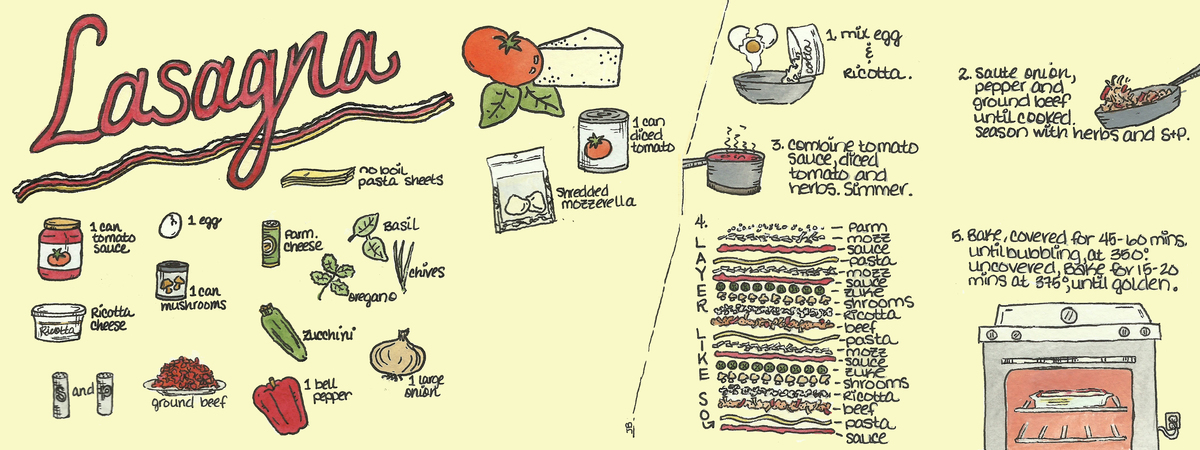 Lasagna
no boil
pasta sheets
1 can
tomato
sauce
1 egg
Parm.
cheese
Basil
chives
oregano
1 can
mushrooms
Ricotta
Ricotta
cheese
Zucchini
and
ground beef
1 bell
pepper
1 large
onion
1 can
diced
tomato
Shredded
mozzerella
1. mix egg
&
Ricotta.
2. saute onion,
pepper and
ground beef
until cooked.
season with herbs and S+P.
3. combine tomato
sauce, diced
tomato and
herbs. Simmer.
4.
LAYER LIKE SO
Parm
mozz
sauce
pasta
mozz
sauce
zuke
shrooms
Ricotta
beef
pasta
mozz
sauce
zuke
shrooms
Ricotta
beef
pasta
sauce
5. Bake, covered for 45-60 mins,
until bubbling, at 350°.
uncovered, Bake for 15-20
mins at 375°, until golden.